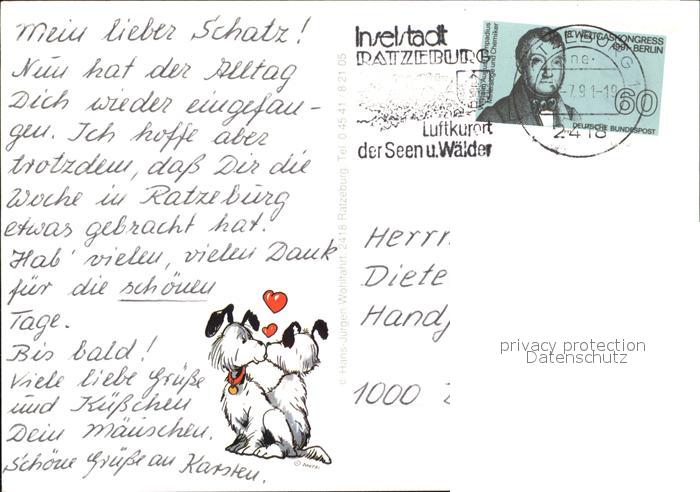 Mein lieber Schatz!
Nun hat der Alltag
Dich wieder eingefan-
gen. Ich hoffe aber
trotzdem, daß Dir die
Woche in Ratzeburg
etwas gebracht hat.
Hab' vielen, vielen Dank
für die schönen
Tage.
Bis bald!
Viele liebe Grüße
und Küßchen
Dein Mäuschen.
Schöne Grüße an Karsten.
© Hans-Jürgen Wohlfahrt, 2418 Ratzeburg, Tel. 0 45 41 · 8 21 05
Inselstadt
RATZEBURG
Luftkurort
der Seen u. Wälder
18. WELTGASKONGRESS
1991 · BERLIN
60
DEUTSCHE BUNDESPOST
2418
Herrn
Diete
Hand
1000
privacy protection
Datenschutz